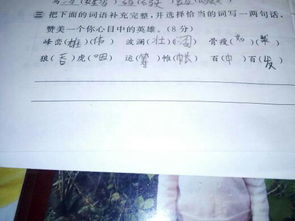 三 把下面的词语补充完整，并选择恰当的词写一两句话，
赞美一个你心目中的英雄。(8 分)
峰峦(雄)(伟) 波澜(壮)(阔)
狼(吞)虎(咽) 运(筹)帷(帐) 百(中)百(发)